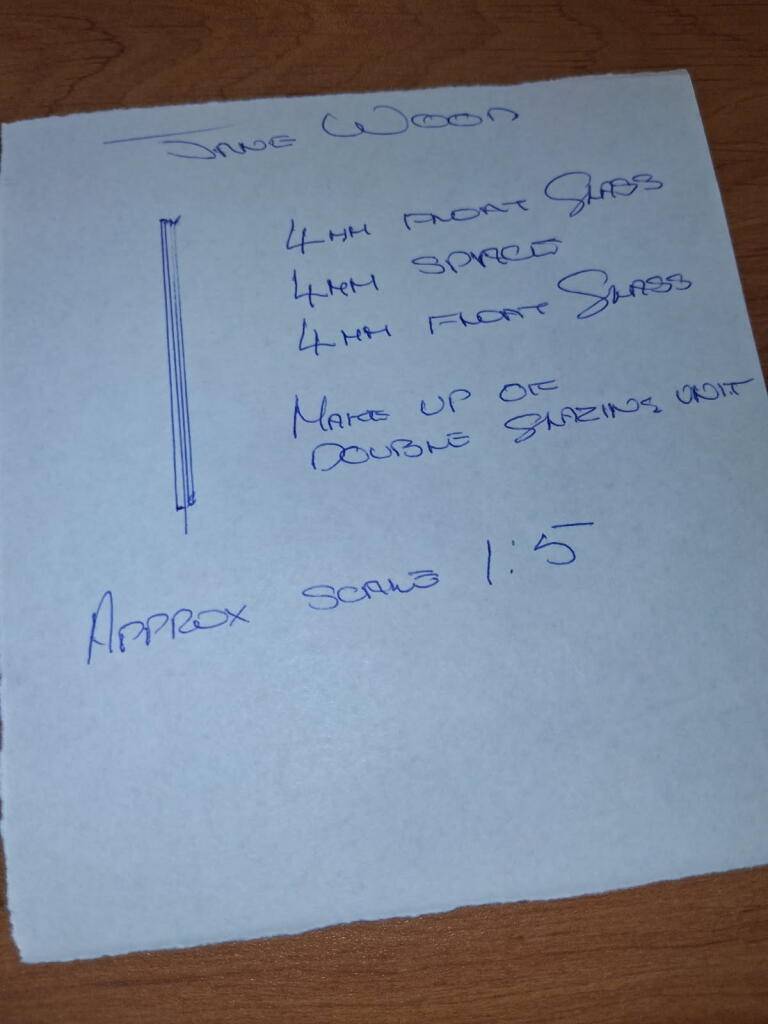 JANE WOOD
4MM FLOAT GLASS
4MM SPACE
4MM FLOAT GLASS
MAKE UP OF
DOUBLE GLAZING UNIT
APPROX SCALE 1:5